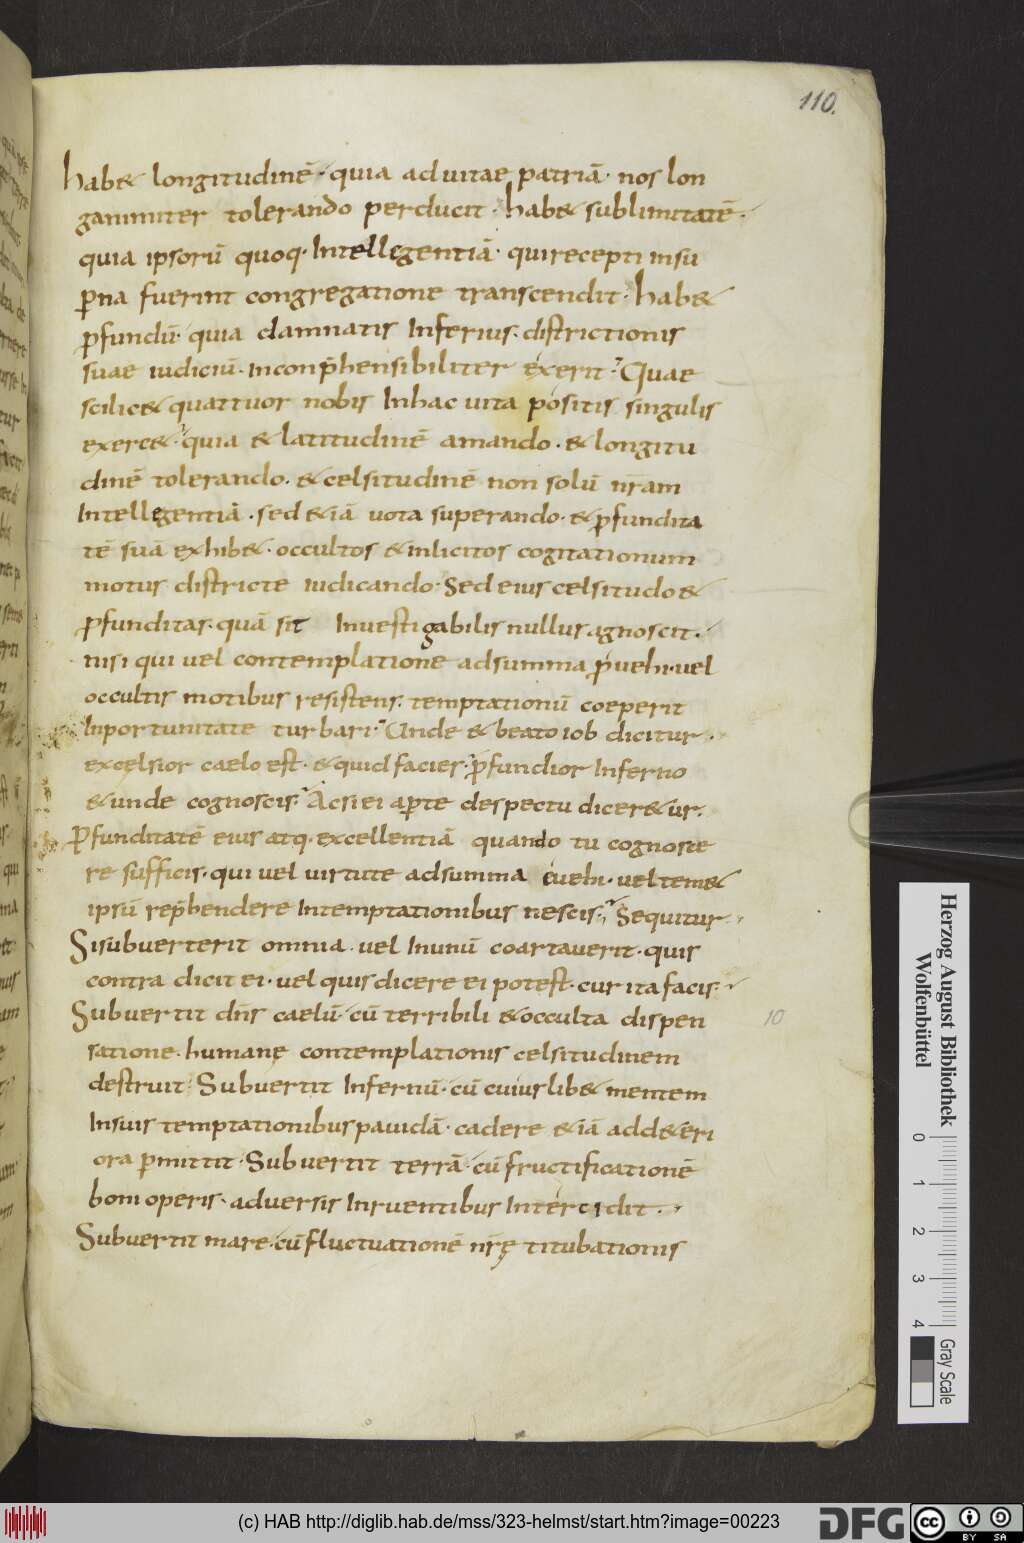 110.
hab& longitudinē · quia ad uitae patriā · nos lon
ganimiter tolerando perducit · hab& sublimitatē ·
quia ipsorū quoq · Intellegentiā · qui recepti insu
ꝑna fuerint congregatione transcendit · hab&
ꝓfundū · quia damnatis Inferius · districtionis
suae iudiciū · inconp̄hensibiliter exerit · Quae
scilic& quattuor nobis Inhac uita positis singulis
exerc& · quia & latitudinē amando · & longitu
dinē tolerando · & celsitudinē non solū nr̄am
Intellegentiā · sed & iā uota superando · & ꝓfundita
tē suā exhib& · occultos & inlicitos cogitationum
motus districte iudicando · Sed eius celsitudo &
ꝓfunditas · quā sit Investigabilis nullus agnoscit ·
nisi qui uel contemplatione adsumma ꝓuehi · uel
occultis motibus resistens · temptationū coeperit
Inportunitate turbari · Unde & beato iob dicitur ·
excelsior caelo est · & quid facies · ꝓfundior Inferno
& unde cognoscis · Acsi ei aꝑte despectu dicer&ur ·
Ꝓfunditatē eius atq · excellentiā quando tu cognosce
re sufficis · qui uel uirtute adsumma euehi · uel tem&
ipsū rep̄hendere Intemptationibus nescis · Sequitur ·
Si subuerterit omnia · uel Inunū coartauerit · quis
contra dicit ei · uel quis dicere ei potest · cur ita facis ·
Subuertit dn̄s caelū · cū terribili & occulta dispen
10
satione · humanę contemplationis celsitudinem
destruit · Subuertit Infernū · cū cuiuslib& mentem
Insuis temptationibus pauidā · cadere & iā add&eri
ora ꝑmittit · Subuertit terrā · cū fructificationē
boni operis · aduersis Inruentibus Intercidit ·
Subuertit mare · cū fluctuationē nr̄ę titubationis
Herzog August Bibliothek
Wolfenbüttel
0 1 2 3 4
Gray Scale
(c) HAB http://diglib.hab.de/mss/323-helmst/start.htm?image=00223
DFG
cc BY SA